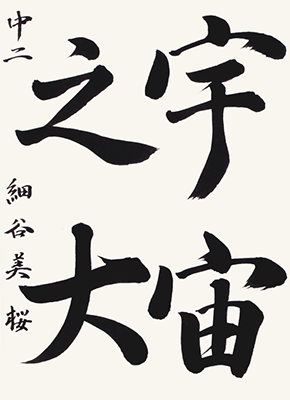 宇宙
之大
中二 細谷美桜